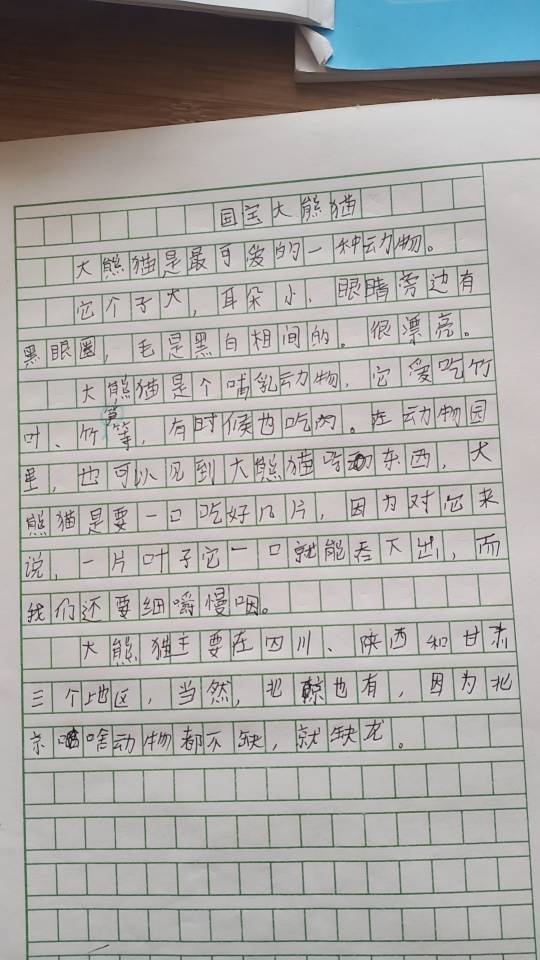 国宝大熊猫
大熊猫是最可爱的一种动物。
它个子大，耳朵小、眼睛旁边有
黑眼圈，毛是黑白相间的。很漂亮。
大熊猫是个哺乳动物，它爱吃竹
叶、竹笋等，有时候也吃肉。在动物园
里，也可以见到大熊猫吃东西，大
熊猫是要一口吃好几片，因为对它来
说，一片叶子它一口就能吞下出，而
我们还要细嚼慢咽。
大熊猫主要在四川、陕西和甘肃
三个地区，当然，北京也有，因为北
京啥动物都不缺，就缺龙。